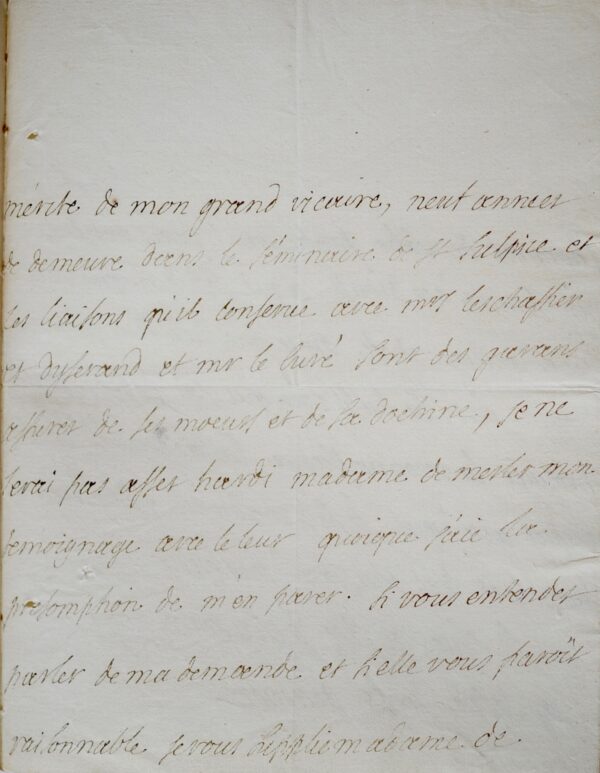 mérite de mon grand vicaire, neuf années
de demeure dans le séminaire de st sulpice et
les liaisons qu'il conserve avec mrs leschassier
et et mr le curé sont des garans
assurez de ses moeurs et de sa doctrine, je ne
serai pas assez hardi madame de mesler mon
temoignage avec le leur quoique j'aie la
presomption de m'en parer. si vous entendez
parler de ma demande et si elle vous paroît
raisonnable je vous supplie madame de